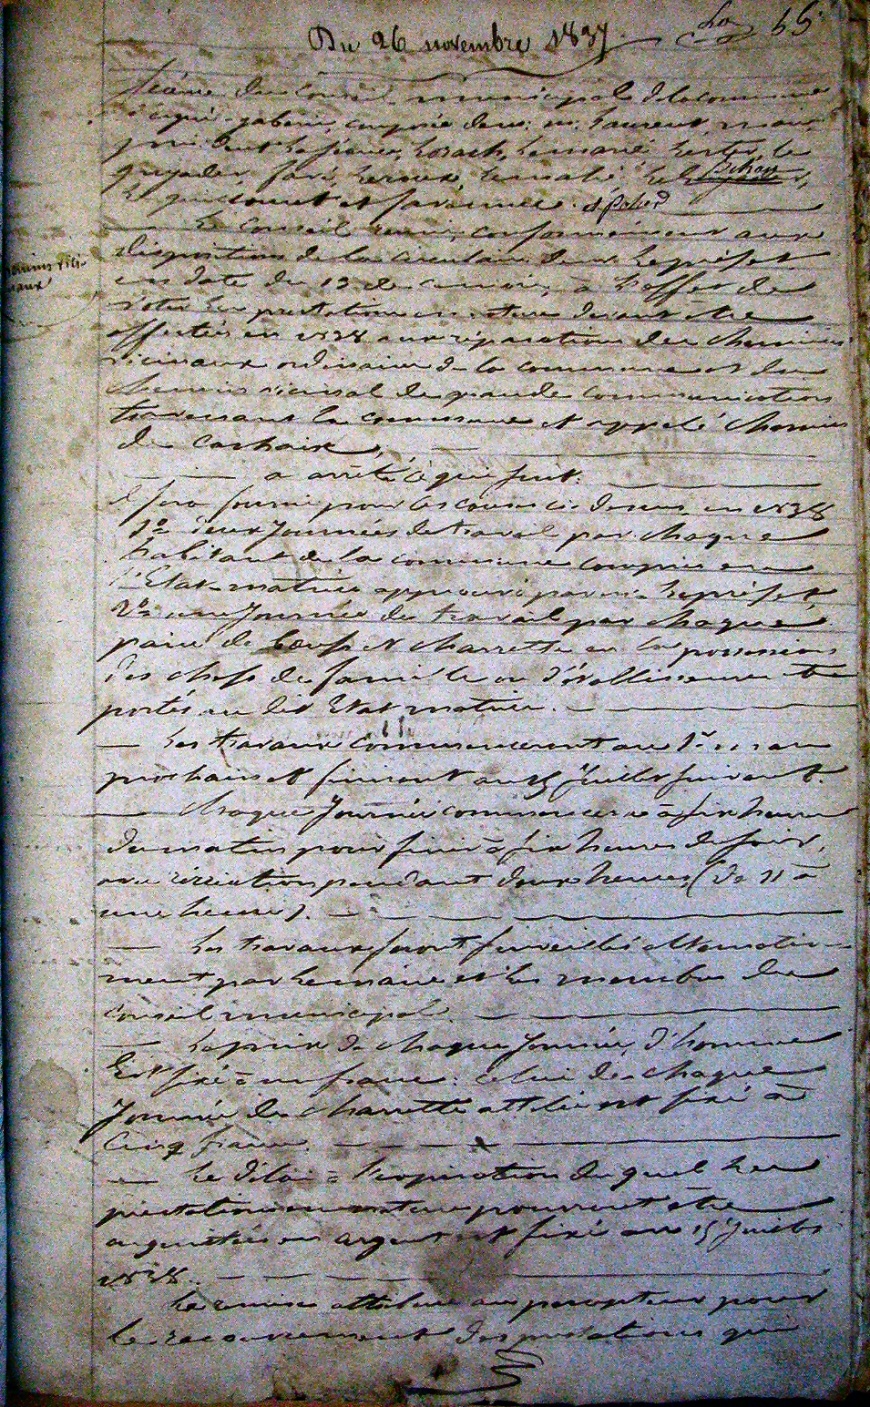 Du 26 novembre 1837.
55
Séance du Conseil municipal de la commune
composée de m.m. Laurent, maire,
président la séance,
et
Le Conseil réuni, conformément aux
dispositions de la circulaire de m. le préfet
en date du 13 de ce mois, à l'effet de
voter les prestations en nature devant être
affectées en 1838 aux réparations des chemins
vicinaux ordinaires de la commune et du
chemin vicinal de grande communication
traversant la commune et appelé chemin
de
a arrêté ce qui suit:
Il sera fourni pour les causes ci dessus en 1838
1º deux Journées de travail par chaque
habitant de la commune compris en
l'Etat-matrice approuvé par m. le préfet,
2º une Journée de travail par chaque
paire de boeufs et charrette en la possession
des chefs de famille ou d'établissement
portés au dit Etat matrice.
Les travaux commenceront au 1er mars
prochain et finiront au 15 Juillet suivant.
Chaque Journée commencera à six heures
du matin pour finir à six heures du soir,
avec récréation pendant deux heures (de 11 à
une heure).
Les travaux seront surveillés alternative-
ment par le maire et les membres du
conseil municipal.
Le prix de chaque Journée d'homme
Est fixé à un franc: celui de chaque
Journée de charrette attelée est fixé à
Cinq francs.
Le délai à l'expiration duquel les
prestations en nature pourront être
acquittées en argent est fixé au 15 Juillet
1838.
La remise attribuée au percepteur pour
le recouvrement des prestations qui